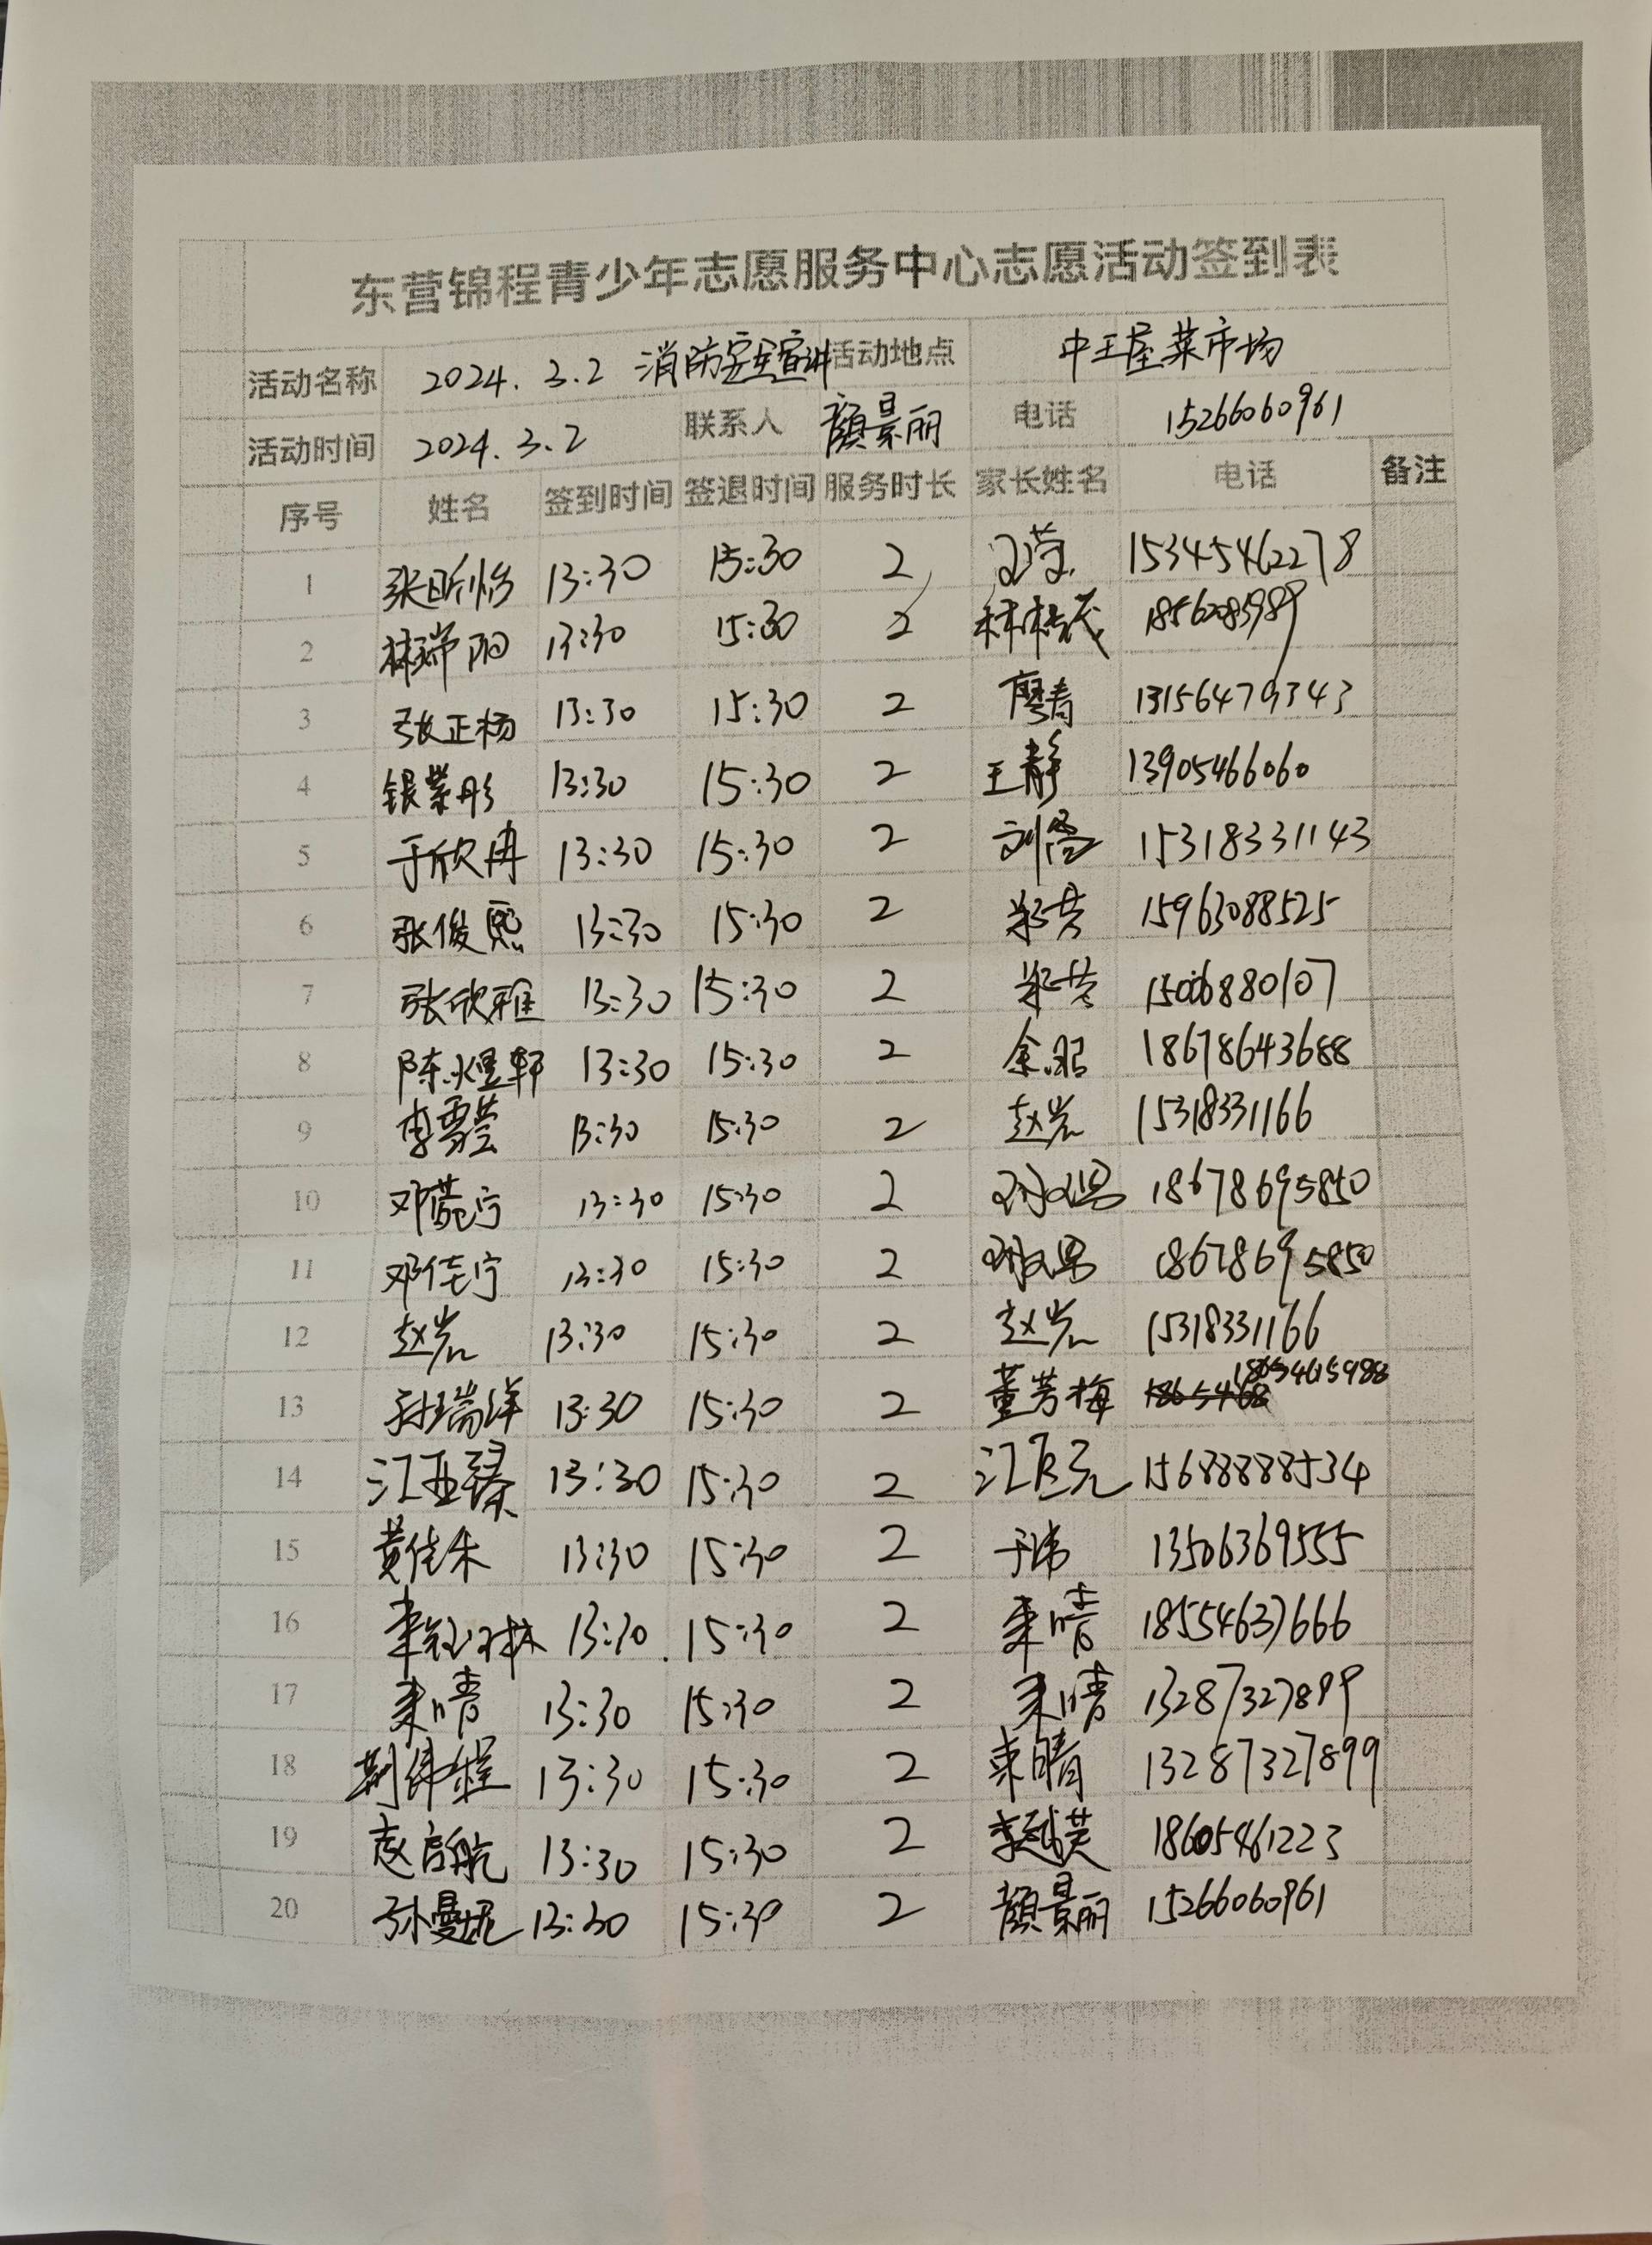 东营锦程青少年志愿服务中心志愿活动签到表
活动名称 2024.3.2 消防安全宣讲 活动地点 中王屋菜市场
活动时间 2024.3.2 联系人 颜景丽 电话 15266060961
序号 姓名 签到时间 签退时间 服务时长 家长姓名 电话 备注
1 张昕怡 13:30 15:30 2 15345462278
2 林瑞阳 13:30 15:30 2 18562083989
3 张正杨 13:30 15:30 2 廖青 13156479343
4 银紫彤 13:30 15:30 2 王静 13905466060
5 于欣冉 13:30 15:30 2 15318331143
6 张俊熙 13:30 15:30 2 15963088525
7 张欣雅 13:30 15:30 2 15006880107
8 陈煜轩 13:30 15:30 2 18678643688
9 李雪莹 13:30 15:30 2 赵岩 15318331166
10 邓菀宁 13:30 15:30 2 18678695850
11 邓佳宁 13:30 15:30 2 18678695850
12 赵岩 13:30 15:30 2 赵岩 15318331166
13 孙瑞洋 13:30 15:30 2 董芳梅 18654615988
14 江亚臻 13:30 15:30 2 15688888534
15 黄佳禾 13:30 15:30 2 于沛 13506369555
16 13:30 15:30 2 来晴 18554637666
17 来晴 13:30 15:30 2 来晴 13287327899
18 荆纬程 13:30 15:30 2 来晴 13287327899
19 赵启航 13:30 15:30 2 18605461223
20 孙曼妮 13:30 15:30 2 颜景丽 15266060961